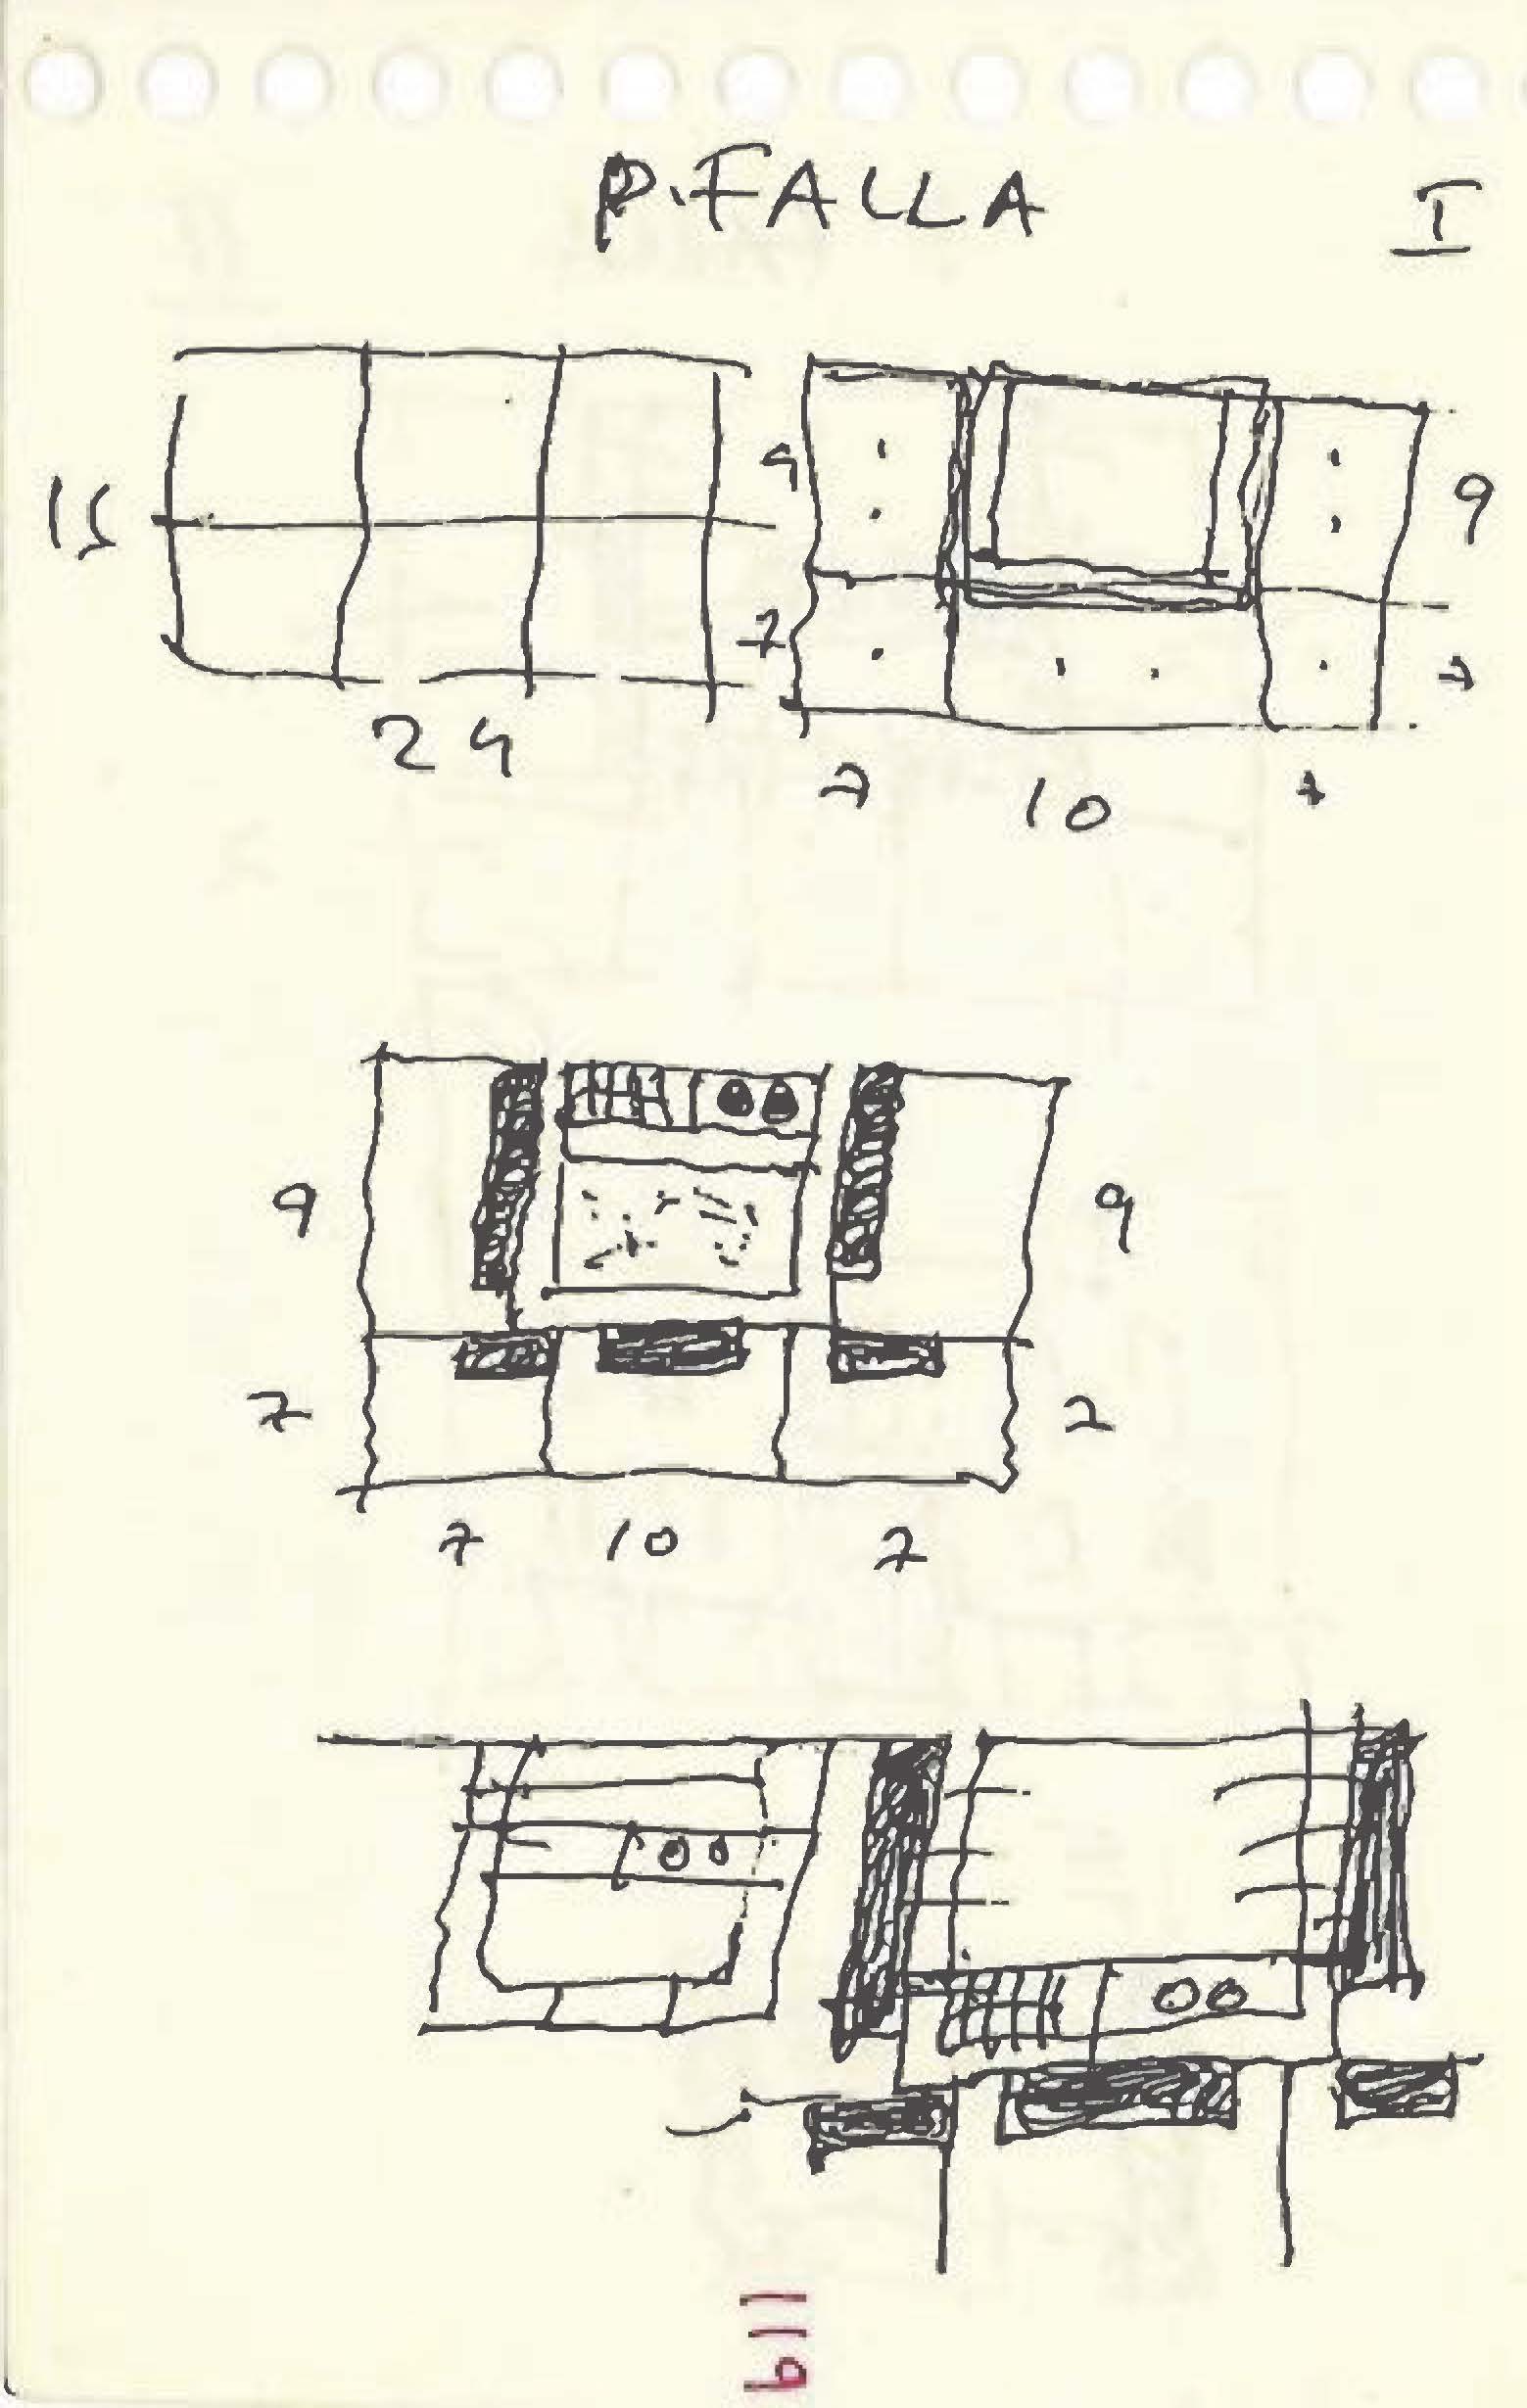 P.FALLA I
15
24
9
7
9
7
7 10 7
9 9
7 7
7 10 7
119